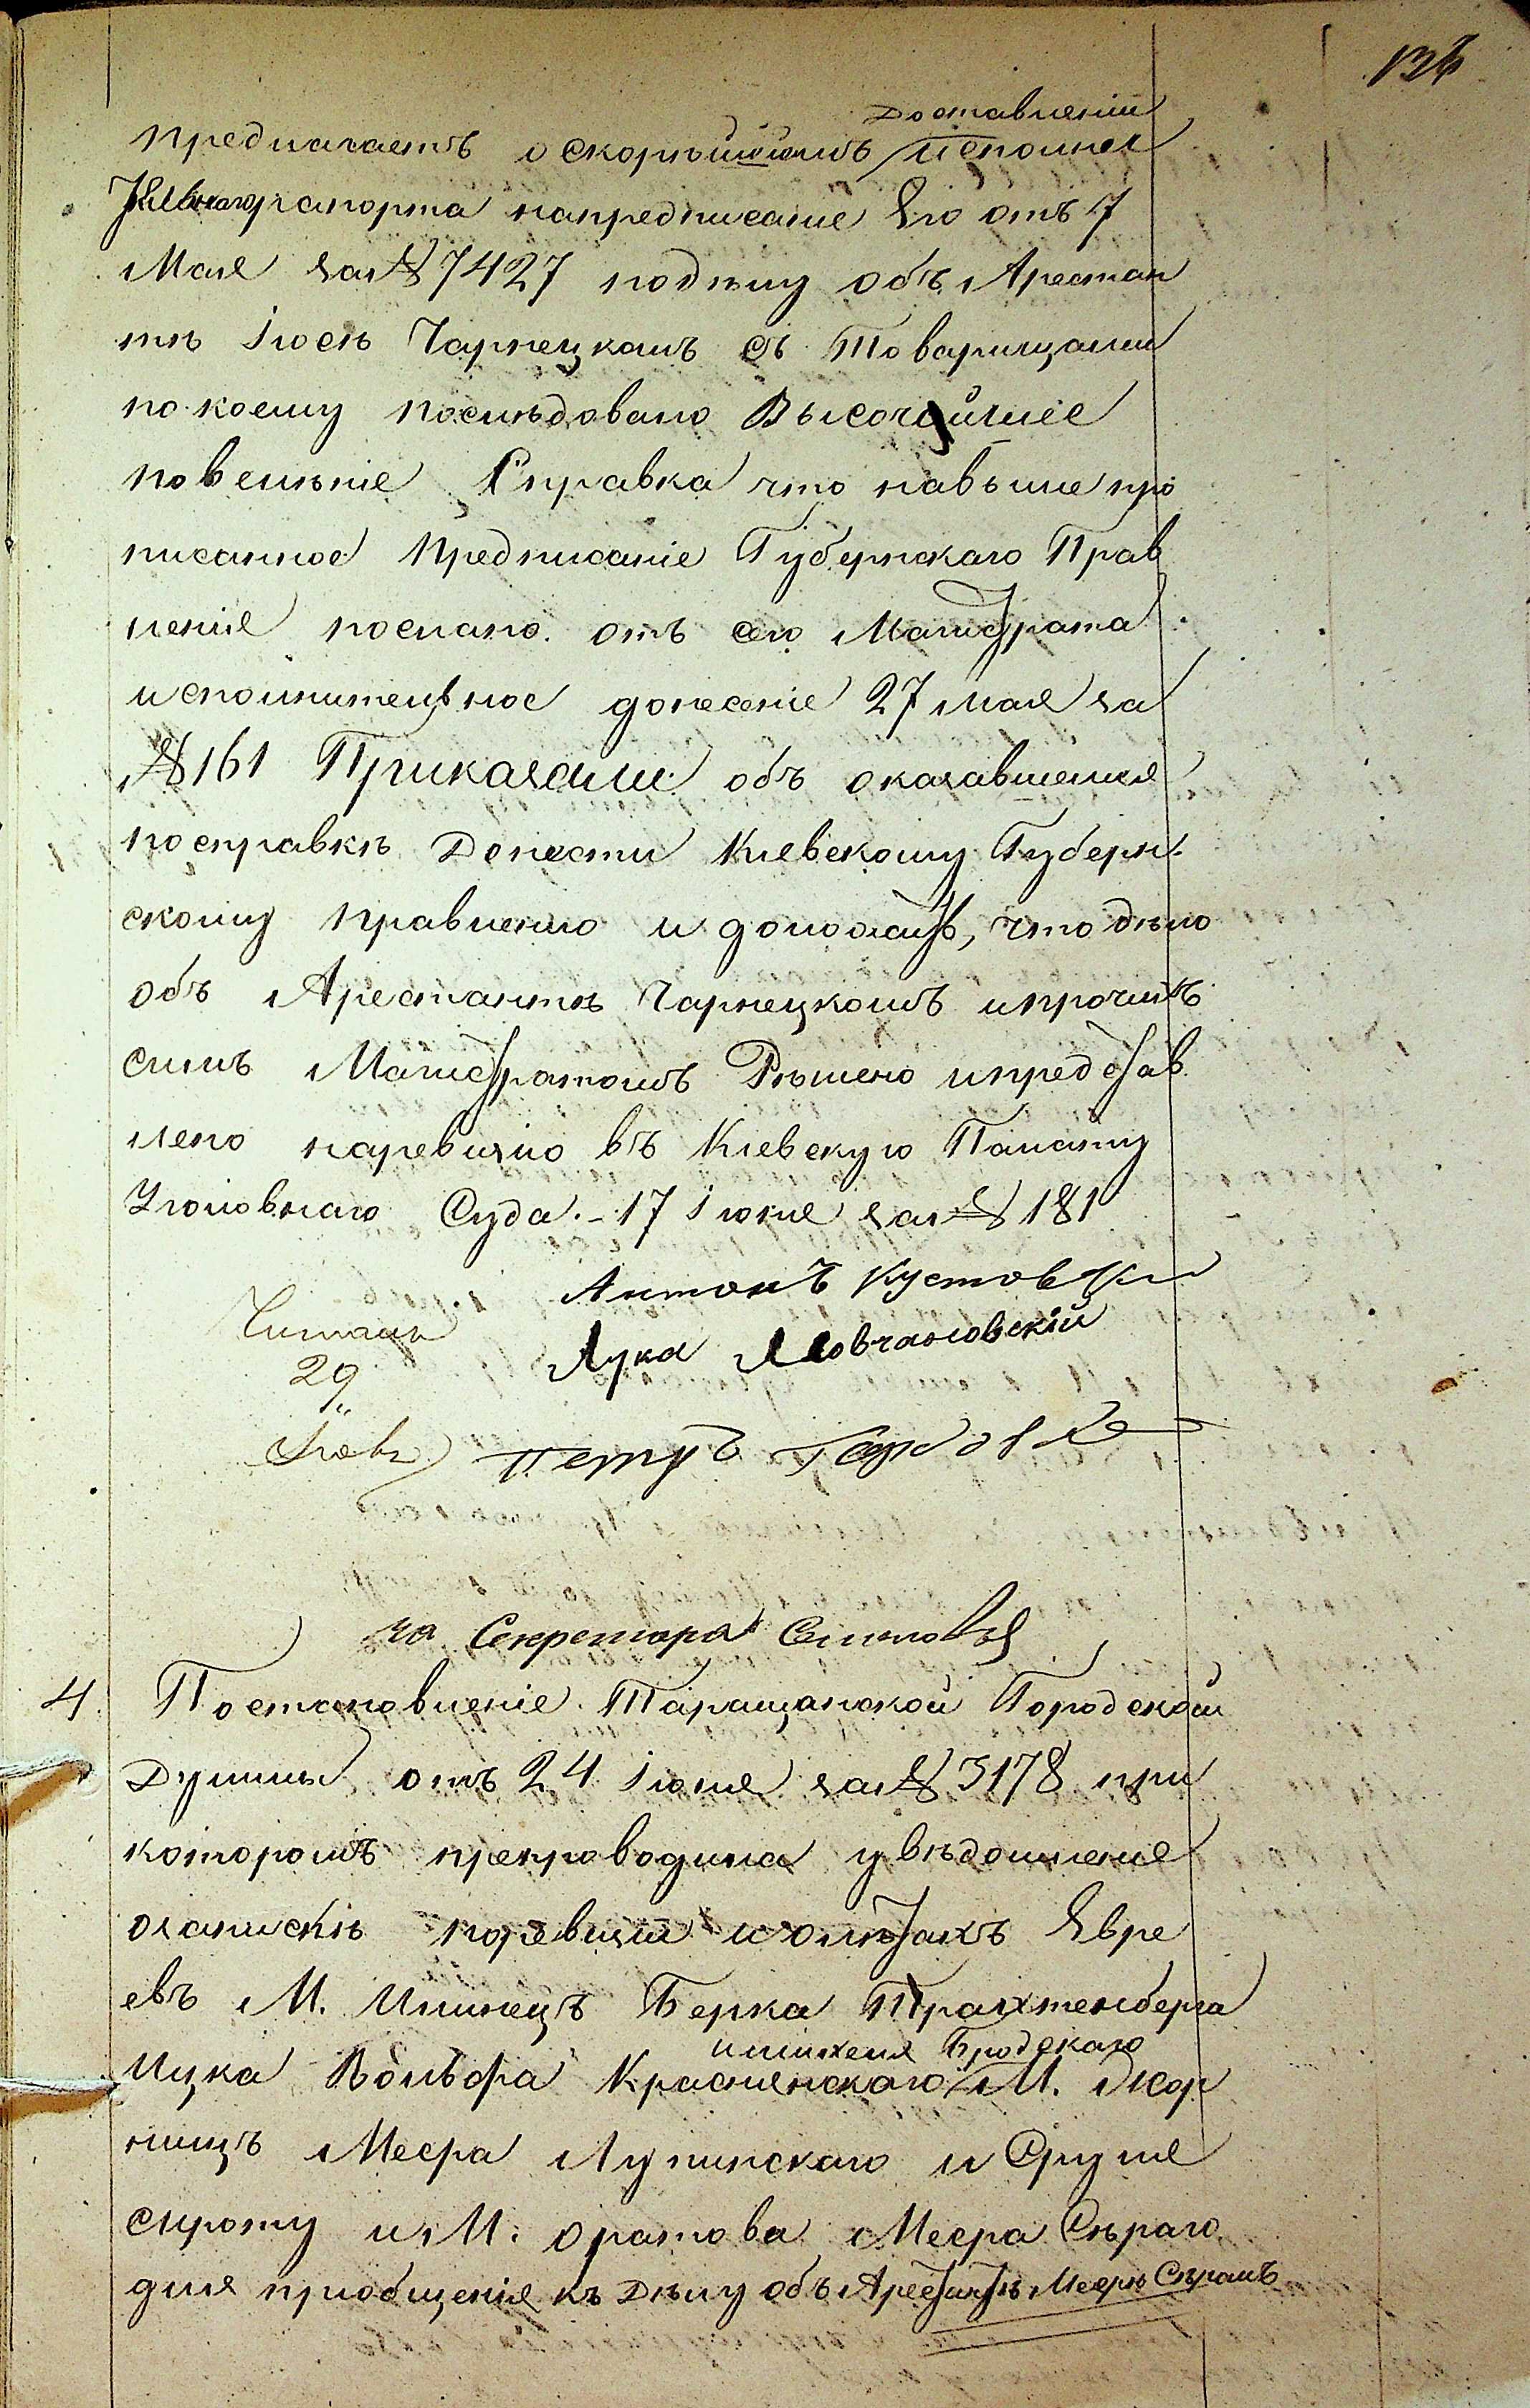 136
доставленіи
предлагаетъ о скорѣйшемъ исполне
тельнаго рапорта напредписаніе Его отъ 7
Мая за № 7427 подѣлу объ Арестан
тѣ Іосѣ Чарнецкомъ съ Товарищами
по коему послѣдовало Высочайшее
повелѣніе Справка что навыше про
писанное предписаніе Губернскаго Прав
ленія послано отъ сего Магистрата
исполнительное донесеніе 27 мая за
№ 161 Приказали объ оказавшемся
посправкѣ Донести Кіевскому Губерн
скому правленію и доложить, что дѣло
объ Арестантѣ Чарнецкомъ ипрочихъ
симъ Магистратомъ Рѣшено ипредстав
лено наревизію въ Кіевскую Палату
Уголовнаго Суда. 17 Іюня за № 181
Антонъ Кустовски
Читалъ
29
Лука Мовчановскій
Петръ
за Секретара
4. Постановленіе Таращанской Городской
Думы отъ 24 Іюня за № 3178 при
которомъ препроводила увѣдомленіе
озапискѣ поревизіи Евре
евъ М. Илинецъ Берка Трахтенберга
имихеля Бродскаго
Ицка Вольфа Красненскаго М. Жор
нищъ Меера Лупинскаго и Сруля
сироту и М. Оратова Меера Сѣраго
для пріобщенія къ Дѣлу объ Арестантѣ Меерѣ Сѣромъ